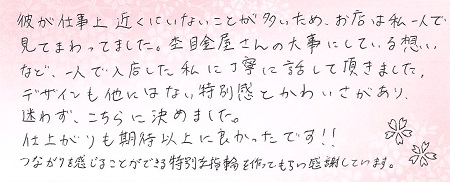 彼が仕事上近くにいないことが多いため、お店は私一人で
見てまわってました。杢目金屋さんの大事にしている想い
など、一人で入店した私に丁寧に話して頂きました。
デザインも他にはない特別感とかわいさがあり、
迷わず、こちらに決めました。
仕上がりも期待以上に良かったです!!
つながりを感じることができる特別な指輪を作ってもらい感謝しています。